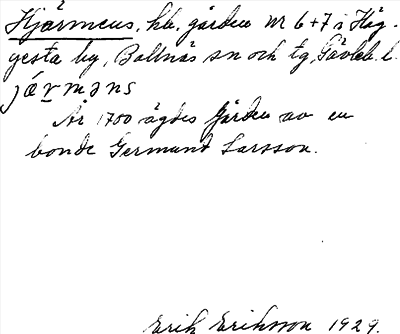 Hjärmens, hb. gården nr 6+7 i Häg-
gesta by, Bollnäs sn och tg, Gävleb. l.
jä́rməns
År 1700 ägdes gården av en
bonde Germund Larsson.
Erik Eriksson 1929.